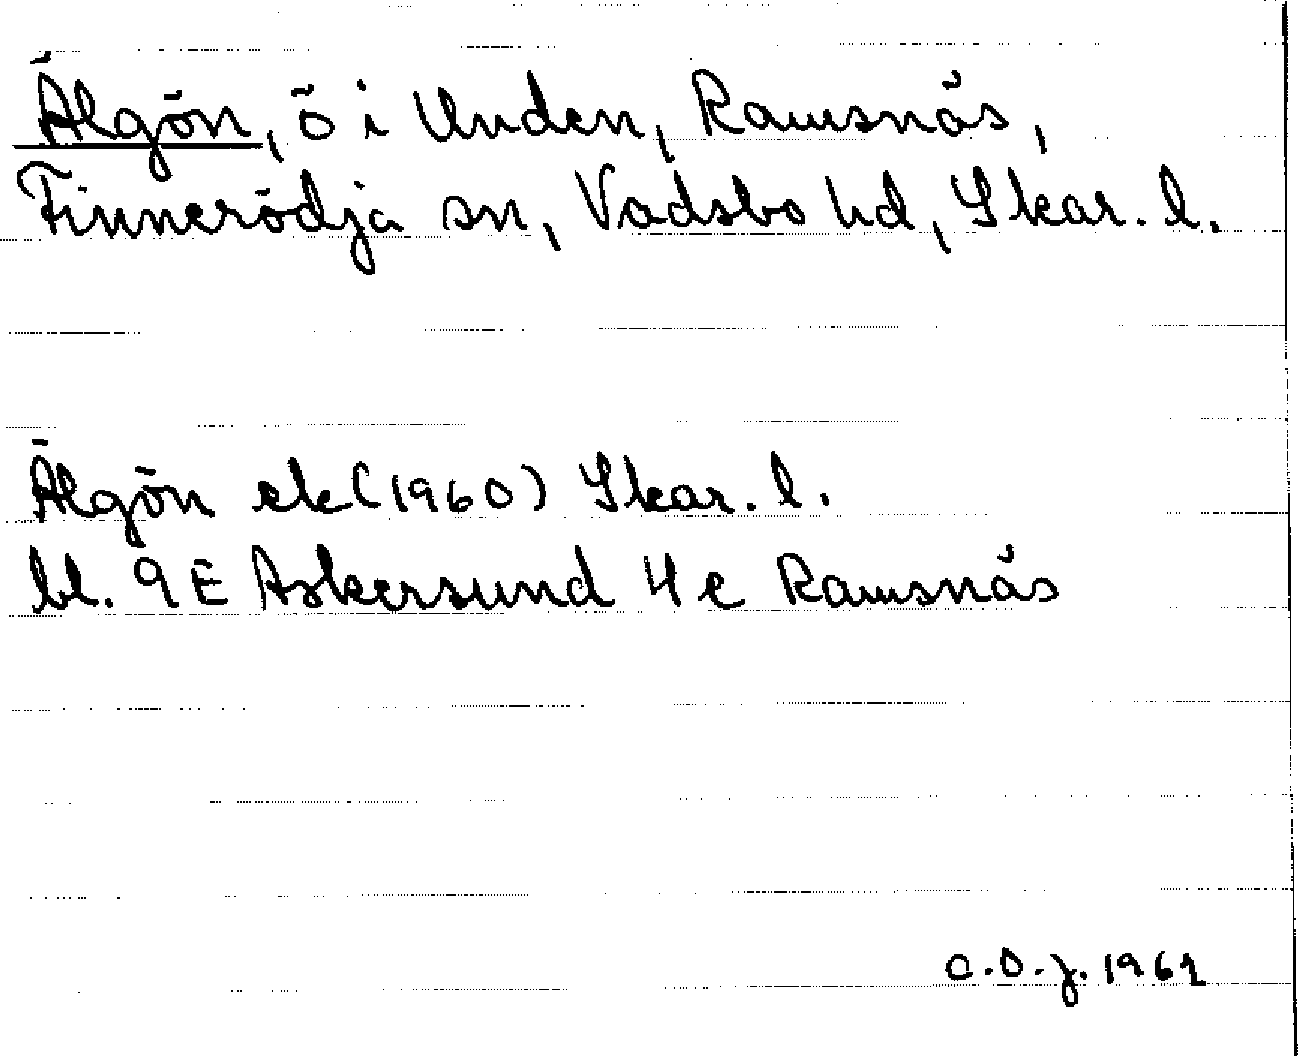 Älgön, ö i Unden, Ramsnäs,
Finnerödja sn, Vadsbo hd, Skar. l.
Älgön ek (1960) Skar. l.
bl. 9E Askersund 4e Ramsnäs
C.O.J. 1961